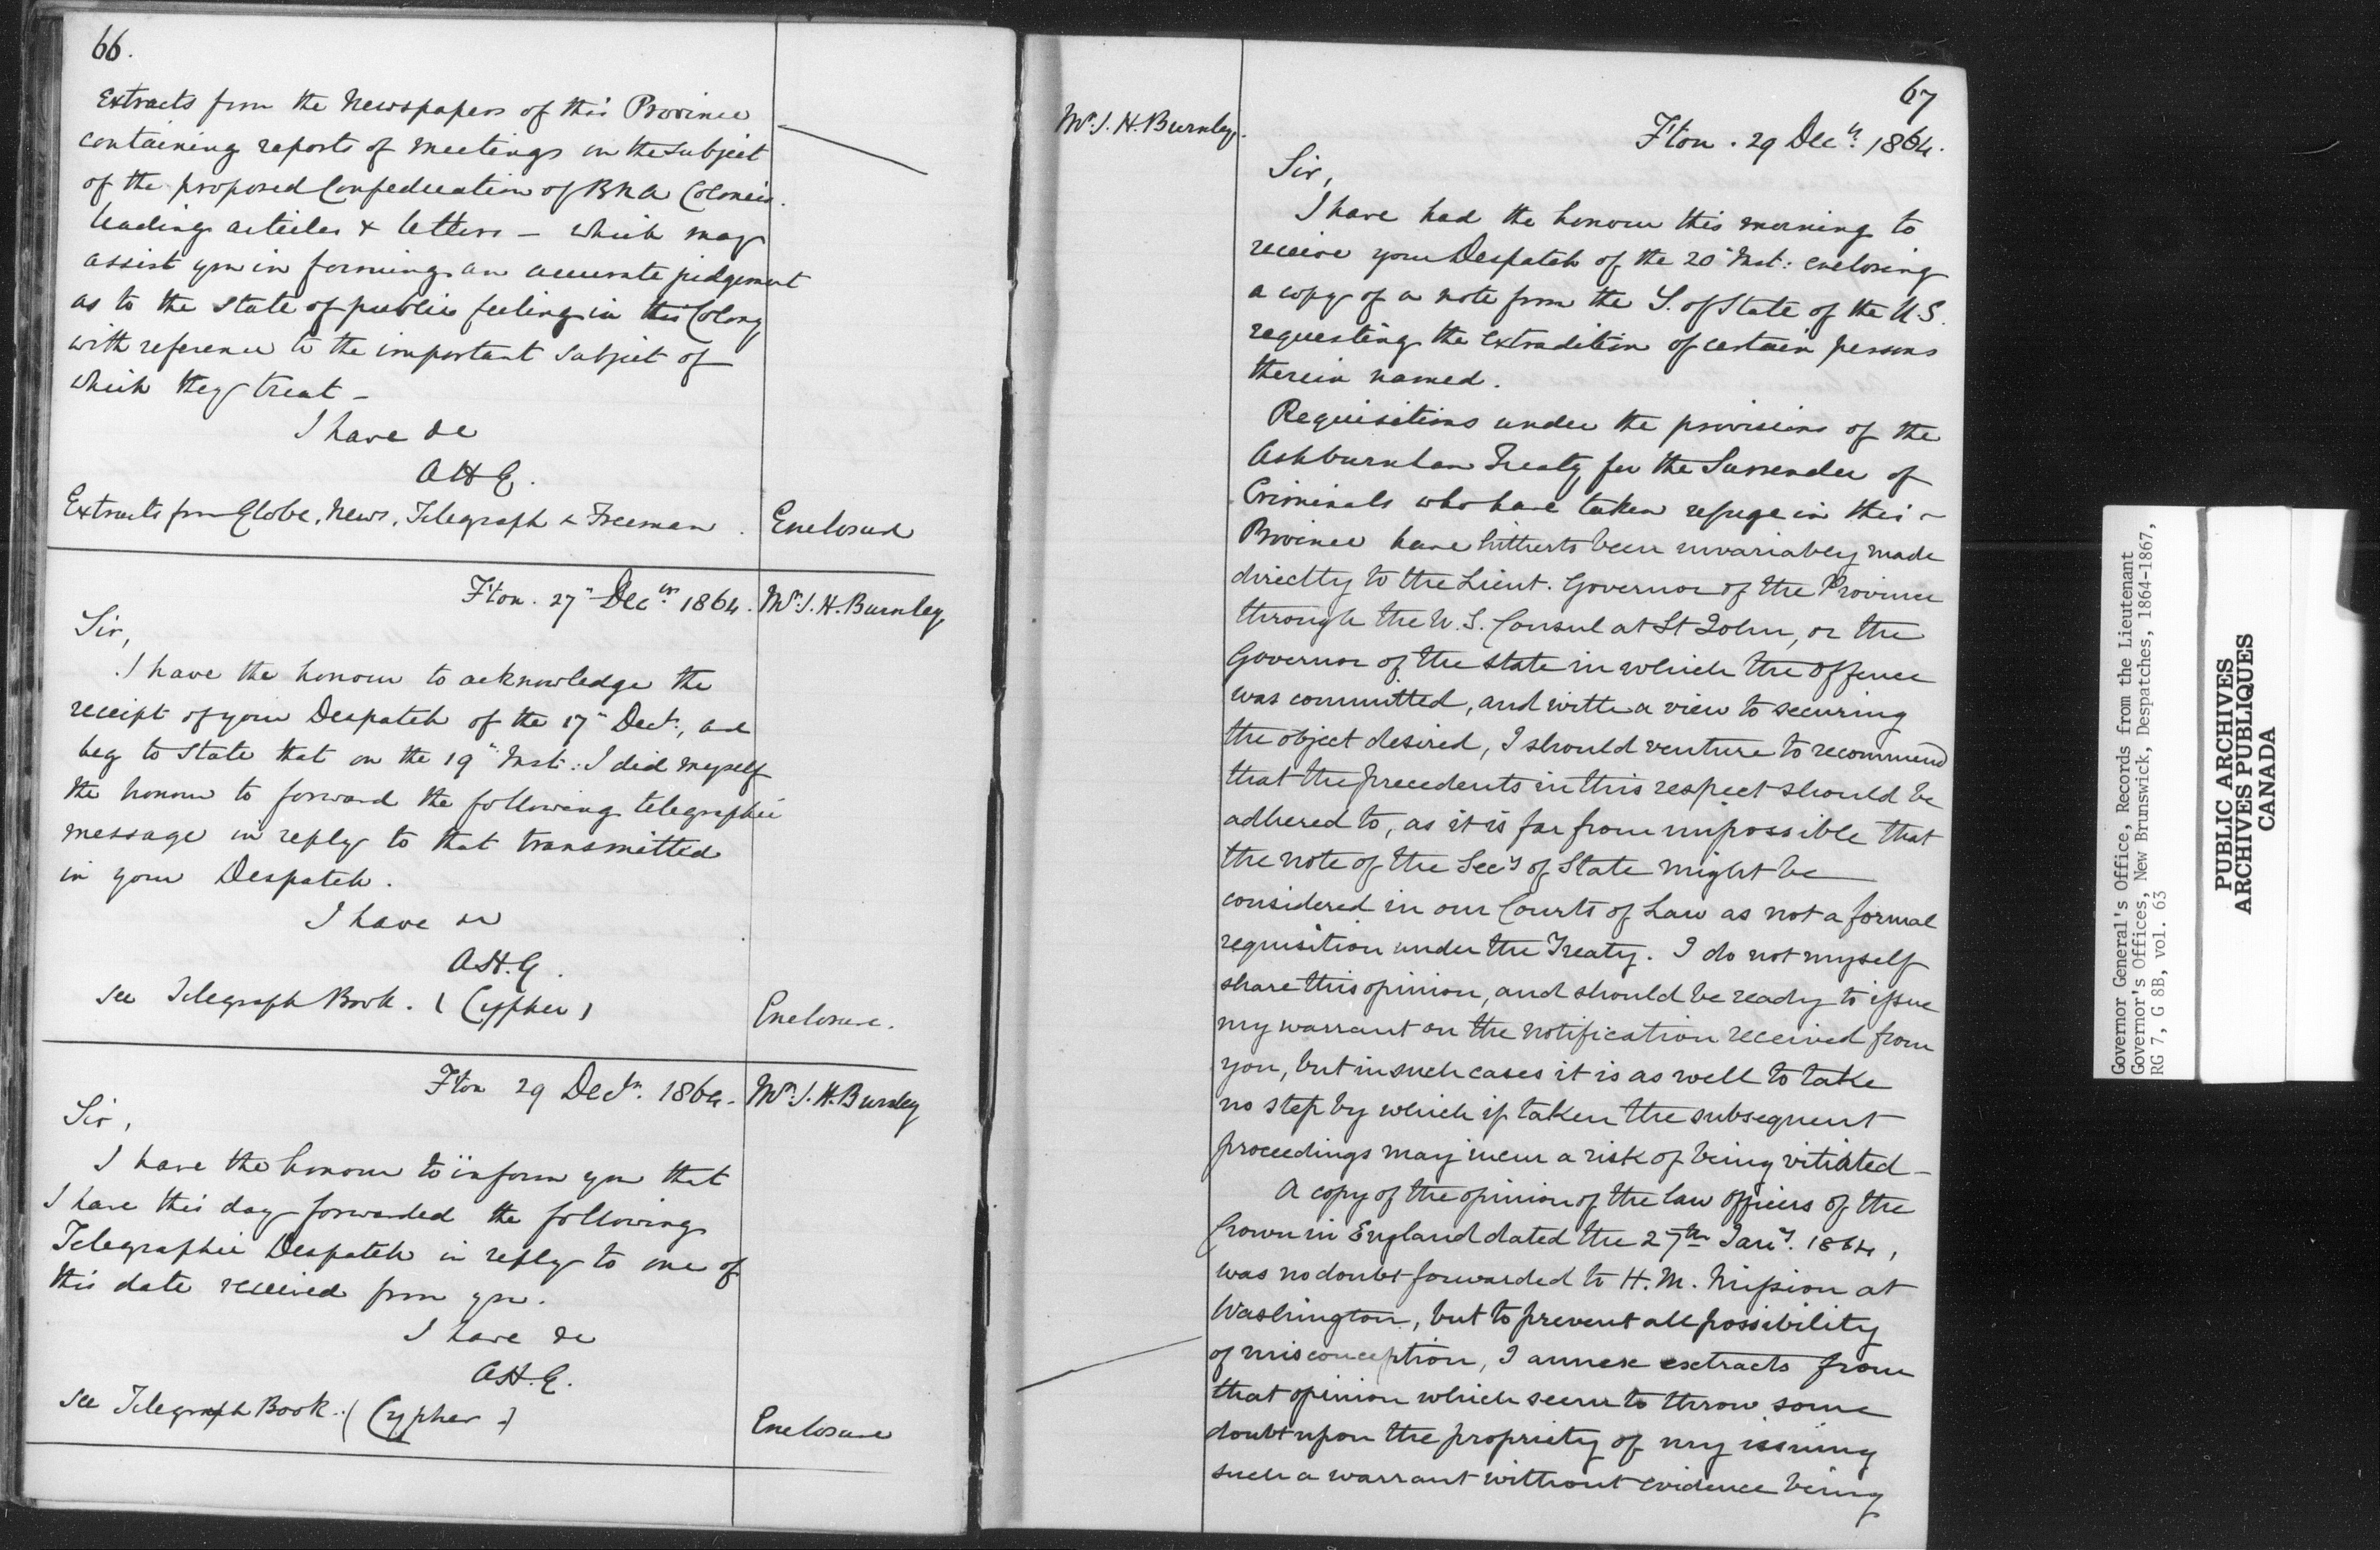 66.
Extracts from the Newspapers of this Province
containing reports of meetings on the subject
of the proposed Confederation of BNA Colonies.
leading articles & letters – which may
assist you in forming an accurate judgement
as to the state of public feeling in this Colony
with reference to the important subject of
which they treat –
I have &c
A H G.
Extracts from Globe, News, Telegraph & Freeman. Enclosure
F'ton. 27th Decr. 1864. Mr. J. H. Burnley
Sir,
I have the honour to acknowledge the
receipt of your Despatch of the 17th Decr., and
beg to state that on the 19th Inst: I did myself
the honour to forward the following telegraphic
message in reply to that transmitted
in your Despatch.
I have &c
A.H.G.
See Telegraph Book. (Cypher) Enclosure.
F'ton 29 Decr. 1864. Mr. J. H. Burnley
Sir,
I have the honour to inform you that
I have this day forwarded the following
Telegraphic Despatch in reply to one of
this date received from you.
I have &c
A.H.G.
See Telegraph Book. (Cypher) Enclosure
67
Mr. J. H. Burnley.
F'ton. 29 Decr. 1864.
Sir,
I have had the honour this morning to
receive your Despatch of the 20th Inst: enclosing
a copy of a note from the S. of State of the U.S.
requesting the extradition of certain persons
therein named.
Requisitions under the provisions of the
Ashburnham Treaty for the Surrender of
Criminals who have taken refuge in this
Province have hitherto been invariably made
directly to the Lieut. Governor of the Province
through the U.S. Consul at St John, or the
Governor of the State in which the offence
was committed, and with a view to securing
the object desired, I should venture to recommend
that the precedents in this respect should be
adhered to, as it is far from impossible that
the note of the Secy of State might be
considered in our Courts of Law as not a formal
requisition under the Treaty. I do not myself
share this opinion, and should be ready to issue
my warrant on the notification received from
you, but in such cases it is as well to take
no step by which if taken the subsequent
proceedings may incur a risk of being vitiated –
A copy of the opinion of the law officers of the
Crown in England dated the 27th Jany. 1864,
was no doubt forwarded to H.M. Mission at
Washington, but to prevent all possibility
of misconception, I annex extracts from
that opinion which seem to throw some
doubt upon the propriety of my issuing
such a warrant without evidence being
Governor General's Office, Records from the Lieutenant
Governor's Offices, New Brunswick, Despatches, 1864-1867,
RG 7, G 8B, vol. 63
PUBLIC ARCHIVES
ARCHIVES PUBLIQUES
CANADA